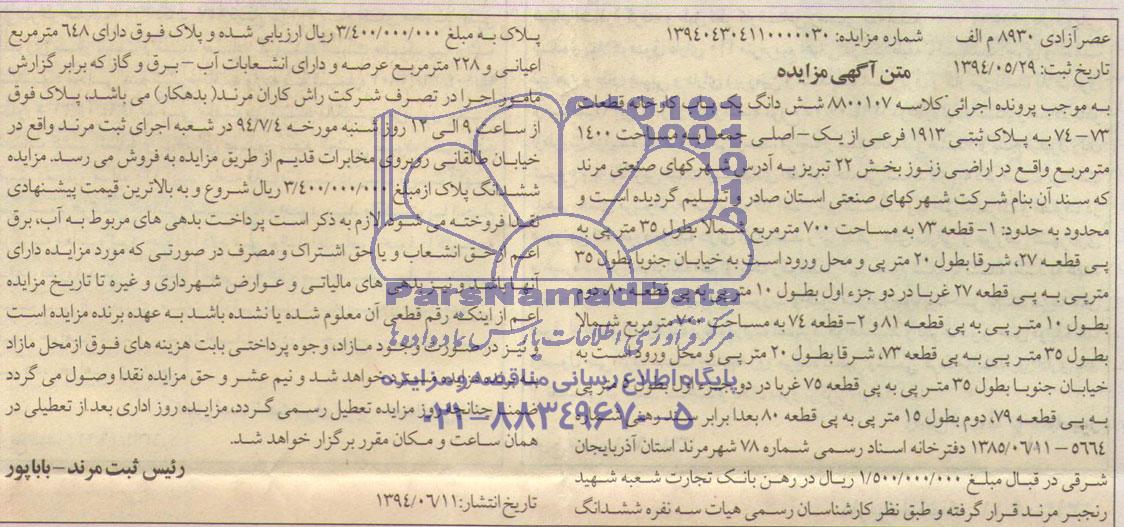 عصر آزادی ۸۹۳۰ م الف شماره مزایده: ۱۳۹۴۰۴۳۰۴۱۱۰۰۰۰۰۳۰
تاریخ ثبت: ۱۳۹۴/۰۵/۲۹
متن آگهی مزایده
به موجب پرونده اجرائی کلاسه ۸۸۰۰۱۰۷ شش دانگ یک باب کارخانه قطعات
۷۳-۷۴ به پلاک ثبتی ۱۹۱۳ فرعی از یک - اصلی جمعا به مساحت ۱۴۰۰
مترمربع واقع در اراضی زنوز بخش ۲۲ تبریز به آدرس شهرکهای صنعتی مرند
که سند آن بنام شرکت شهرکهای صنعتی استان صادر و تسلیم گردیده است و
محدود به حدود: ۱- قطعه ۷۳ به مساحت ۷۰۰ مترمربع شمالا بطول ۳۵ متر پی به
پی قطعه ۲۷، شرقا بطول ۲۰ متر پی و محل ورود است به خیابان جنوبا بطول ۳۵
مترپی به پی قطعه ۲۷ غربا در دو جزء اول بطول ۱۰ متر پی به پی قطعه ۸۰ دوم
بطول ۱۰ متر پی به پی قطعه ۸۱ و ۲- قطعه ۷۴ به مساحت ۷۰۰ مترمربع شمالا
بطول ۳۵ متر پی به پی قطعه ۷۳، شرقا بطول ۲۰ متر پی و محل ورود است به
خیابان جنوبا بطول ۳۵ متر پی به پی قطعه ۷۵ غربا در دو جزء اول بطول ۵ متر پی
به پی قطعه ۷۹، دوم بطول ۱۵ متر پی به پی قطعه ۸۰ بعدا برابر سند رهنی شماره
۵۶۶۴ - ۱۳۸۵/۰۶/۱۱ دفترخانه اسناد رسمی شماره ۷۸ شهر مرند استان آذربایجان
شرقی در قبال مبلغ ۱/۵۰۰/۰۰۰/۰۰۰ ریال در رهن بانک تجارت شعبه شهید
رنجبر مرند قرار گرفته و طبق نظر کارشناسان رسمی هیات سه نفره ششدانگ
پلاک به مبلغ ۳/۴۰۰/۰۰۰/۰۰۰ ریال ارزیابی شده و پلاک فوق دارای ۶۴۸ مترمربع
اعیانی و ۲۲۸ مترمربع عرصه و دارای انشعابات آب - برق و گاز که برابر گزارش
مامور اجرا در تصرف شرکت راش کاران مرند( بدهکار) می باشد، پلاک فوق
از ساعت ۹ الی ۱۲ روز شنبه مورخه ۹۴/۷/۴ در شعبه اجرای ثبت مرند واقع در
خیابان طالقانی روبروی مخابرات قدیم از طریق مزایده به فروش می رسد. مزایده
ششدانگ پلاک از مبلغ ۳/۴۰۰/۰۰۰/۰۰۰ ریال شروع و به بالاترین قیمت پیشنهادی
نقدا فروخته می شود. لازم به ذکر است پرداخت بدهی های مربوط به آب، برق
اعم از حق انشعاب و یا حق اشتراک و مصرف در صورتی که مورد مزایده دارای
آنها باشد و نیز بدهی های مالیاتی و عوارض شهرداری و غیره تا تاریخ مزایده
اعم از اینکه رقم قطعی آن معلوم شده یا نشده باشد به عهده برنده مزایده است
و نیز در صورت وجود مازاد، وجوه پرداختی بابت هزینه های فوق از محل مازاد
به برنده مزایده مسترد خواهد شد و نیم عشر و حق مزایده نقدا وصول می گردد
ضمنا چنانچه روز مزایده تعطیل رسمی گردد، مزایده روز اداری بعد از تعطیلی در
همان ساعت و مکان مقرر برگزار خواهد شد.
رئیس ثبت مرند - باباپور
تاریخ انتشار: ۱۳۹۴/۰۶/۱۱
ParsNamadData
مرکز فرآوری اطلاعات پارس نماد داده ها
پایگاه اطلاع رسانی مناقصه و مزایده
۰۲۱-۸۸۳۴۹۶۷۰-۵